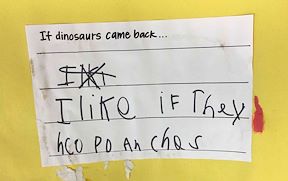 If dinosaurs came back...
I like if They
hco po An chos